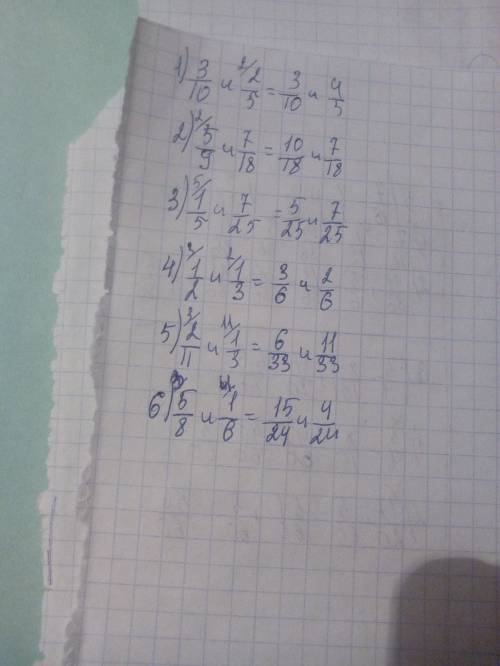 1) 3/10 и ²⁄ 2/5 = 3/10 и 4/5
2) ²⁄ 5/9 и 7/18 = 10/18 и 7/18
3) ⁵⁄ 1/5 и 7/25 = 5/25 и 7/25
4) ³⁄ 1/2 и ²⁄ 1/3 = 3/6 и 2/6
5) ³⁄ 2/11 и ¹¹⁄ 1/3 = 6/33 и 11/33
6) ³⁄ 5/8 и ⁴⁄ 1/6 = 15/24 и 4/24